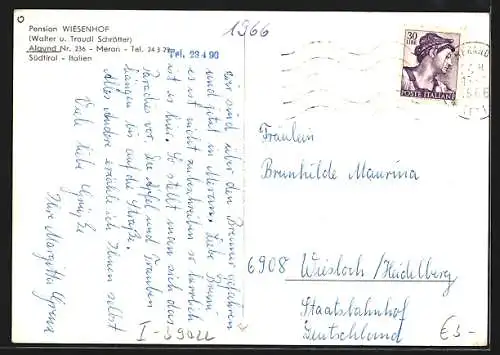 Pension WIESENHOF
(Walter u. Traudl Schrötter)
Algund Nr. 236 - Meran - Tel. 24 3 79
Südtirol - Italien
Tel. 23 4 90
1966
30
LIRE
POSTE ITALIANE
MERANO
wir sind über den Brenner gefahren
und jetzt in Meran. Liebe Bruni
es ist nicht zu beschreiben so herrlich
ist es hier. So stellt man sich das
Paradies vor. Die Äpfel und Trauben
hängen bis auf die Straße.
Alles Andere erzähle ich Ihnen selbst
Viele liebe Grüße
Ihre Margitta
Fräulein
Brunhilde Maurina
6908 Wiesloch/Heidelberg
Staatsbahnhof
Deutschland
I-39022
€3-